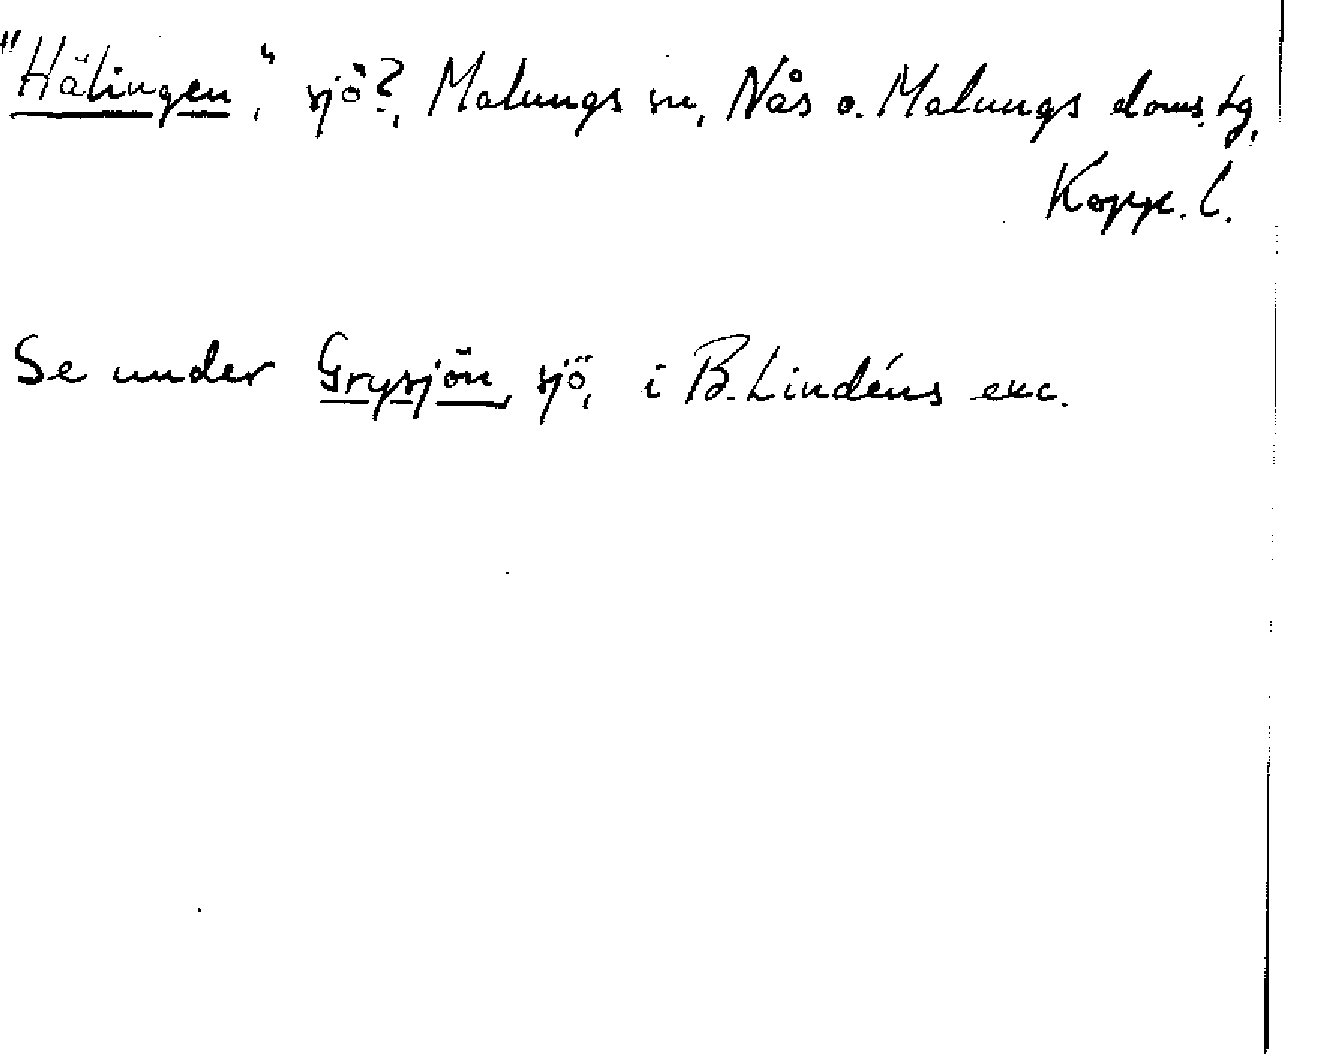 "Hälingen", sjö?, Malungs sn, Nås o. Malungs doms.tg,
Kopp. l.
Se under Grysjön, sjö, i B. Lindéns exc.